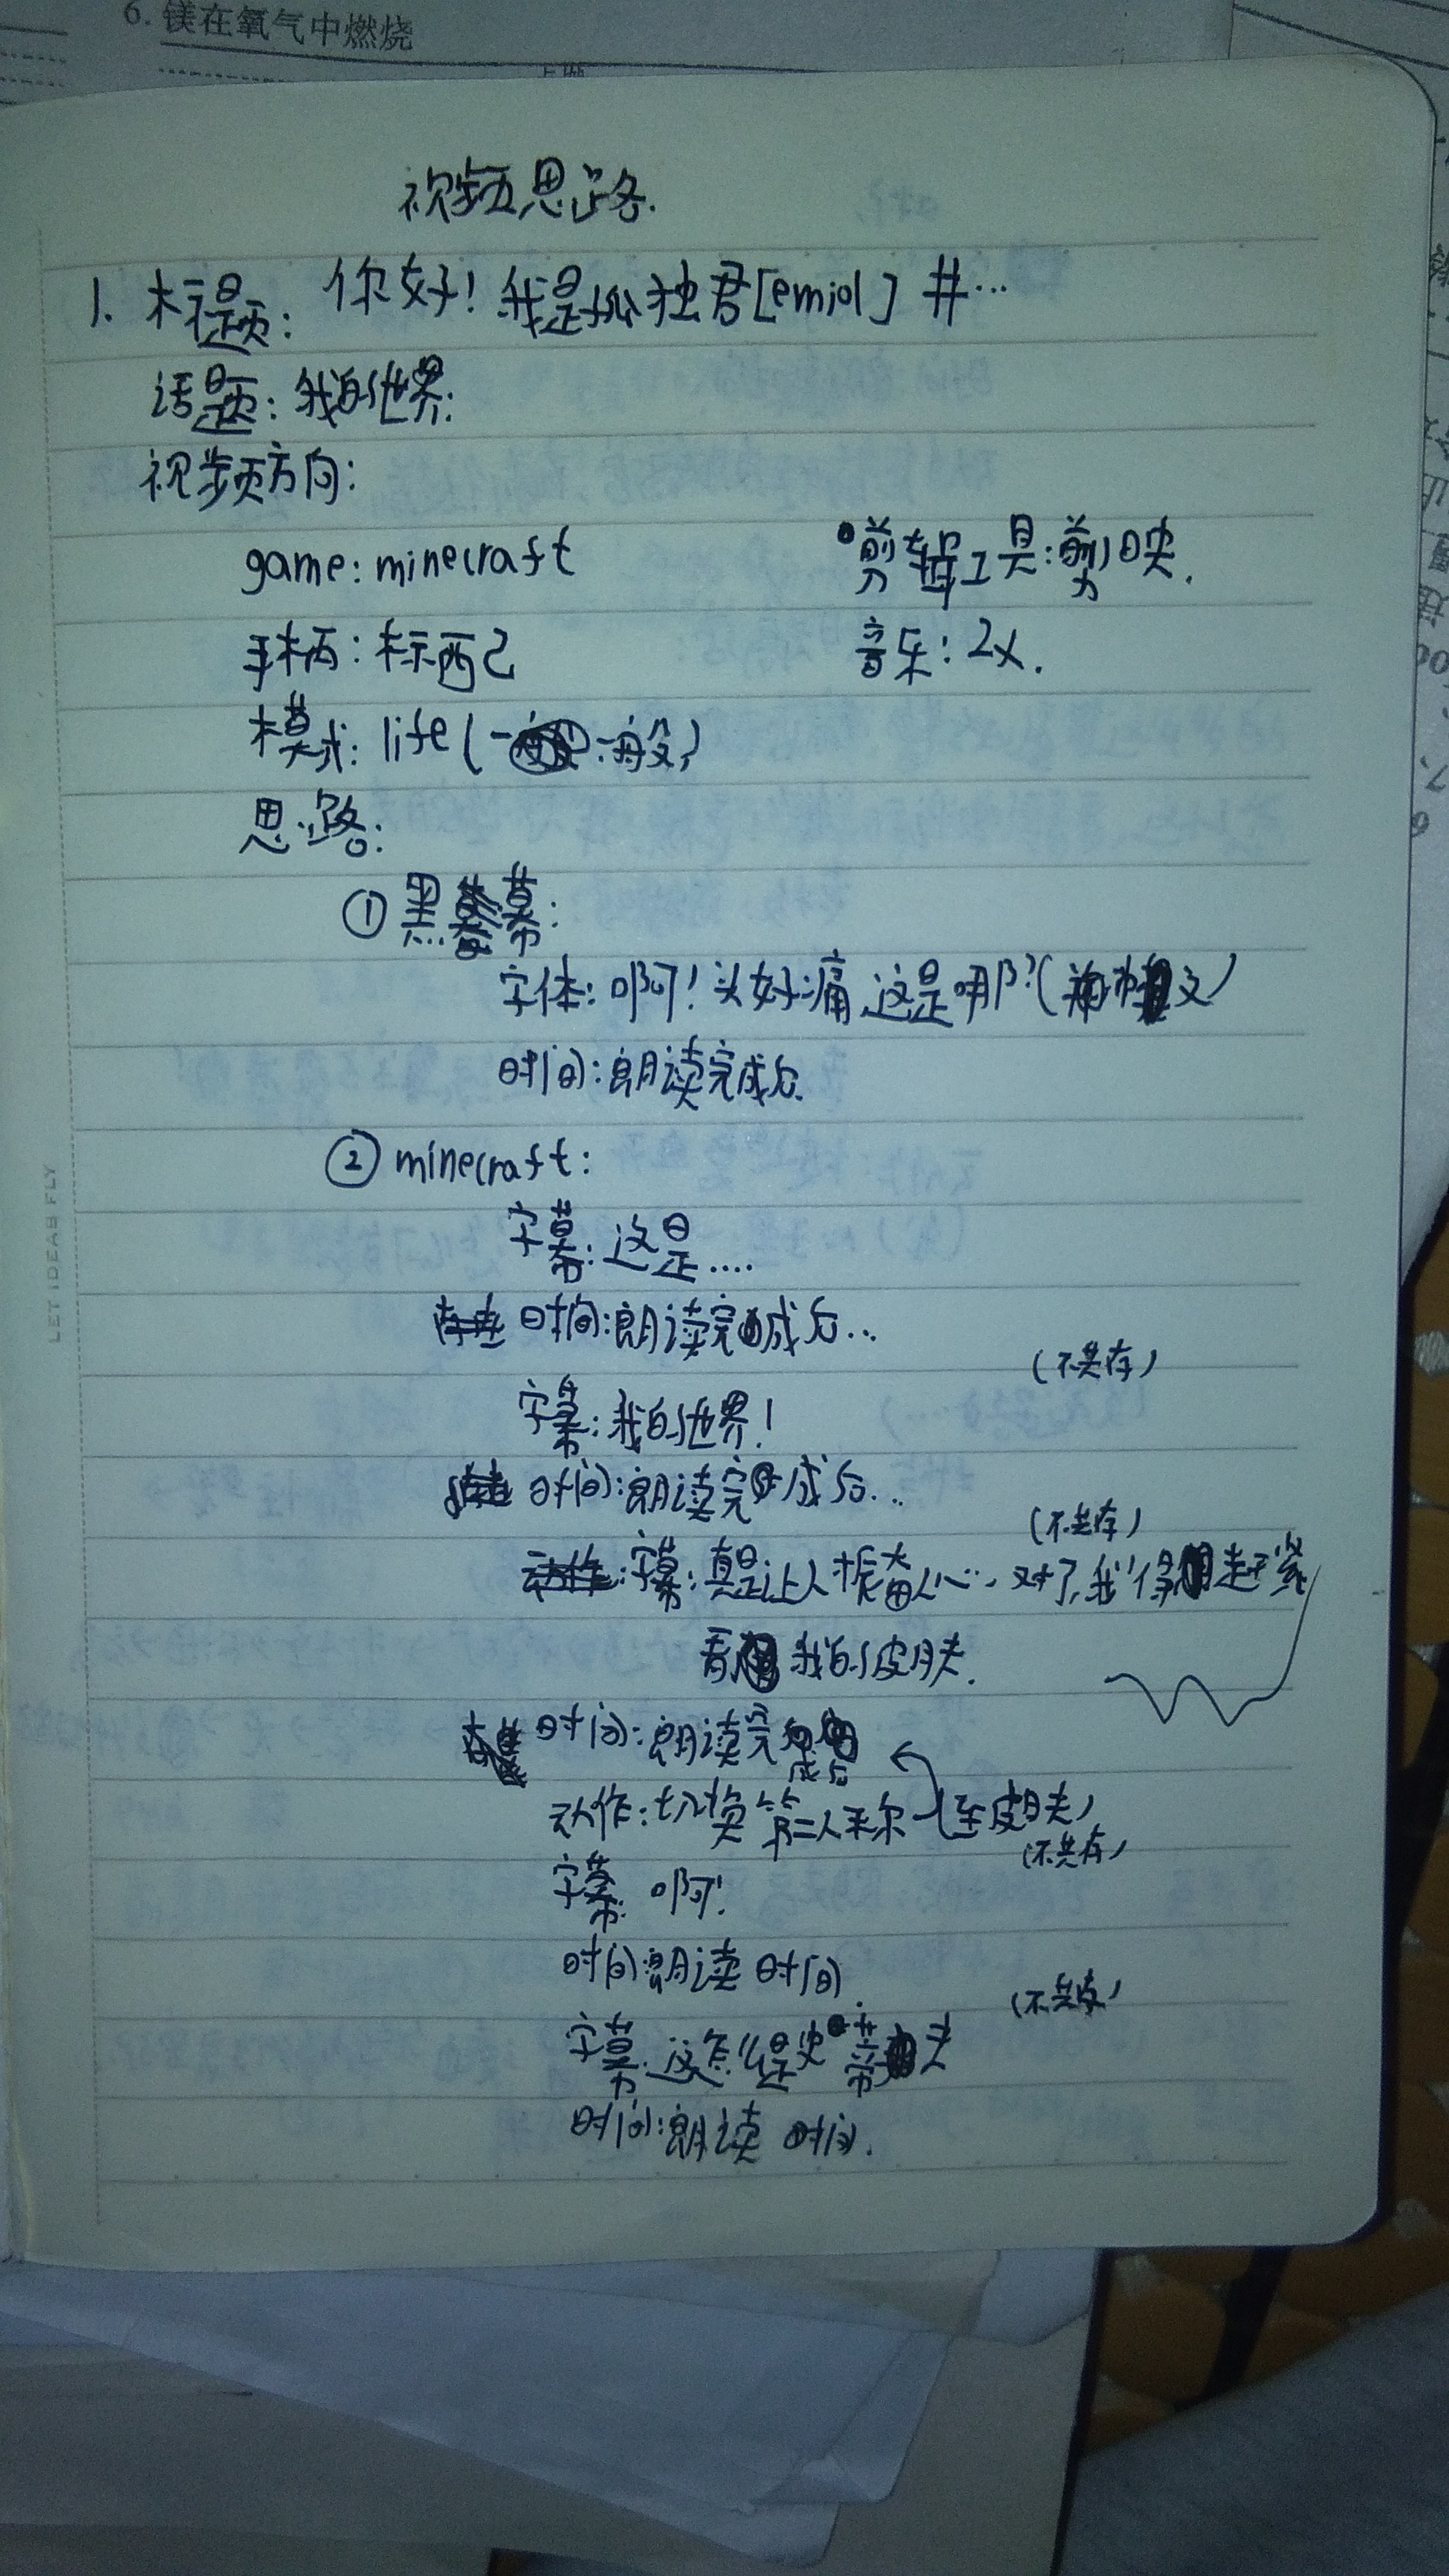 6. 镁在氧气中燃烧
视频思路.
1. 标题: 你好! 我是孤独君[emiol] #...
话题: 我的世界:
视频方向:
game: minecraft
·剪辑工具: 剪映.
手柄: 标西己
音乐: 2x.
模式: life (一般)
思路:
① 黑幕:
字体: 啊! 头好痛 这是哪? (
时间: 朗读完成后.
② minecraft:
字幕: 这是....
时间: 朗读完成后...
(不共存)
字幕: 我的世界!
时间: 朗读完成后...
(不共存)
字幕: 真是让人振奋人心.. 对了, 我得赶紧
看 我的皮肤.
时间: 朗读完成后
动作: 切换第二人称 (至皮肤)
(不共存)
字幕: 啊!
时间: 朗读 时间.
(不共存)
字幕: 这怎么是史蒂夫
时间: 朗读 时间.
LET IDEAS FLY